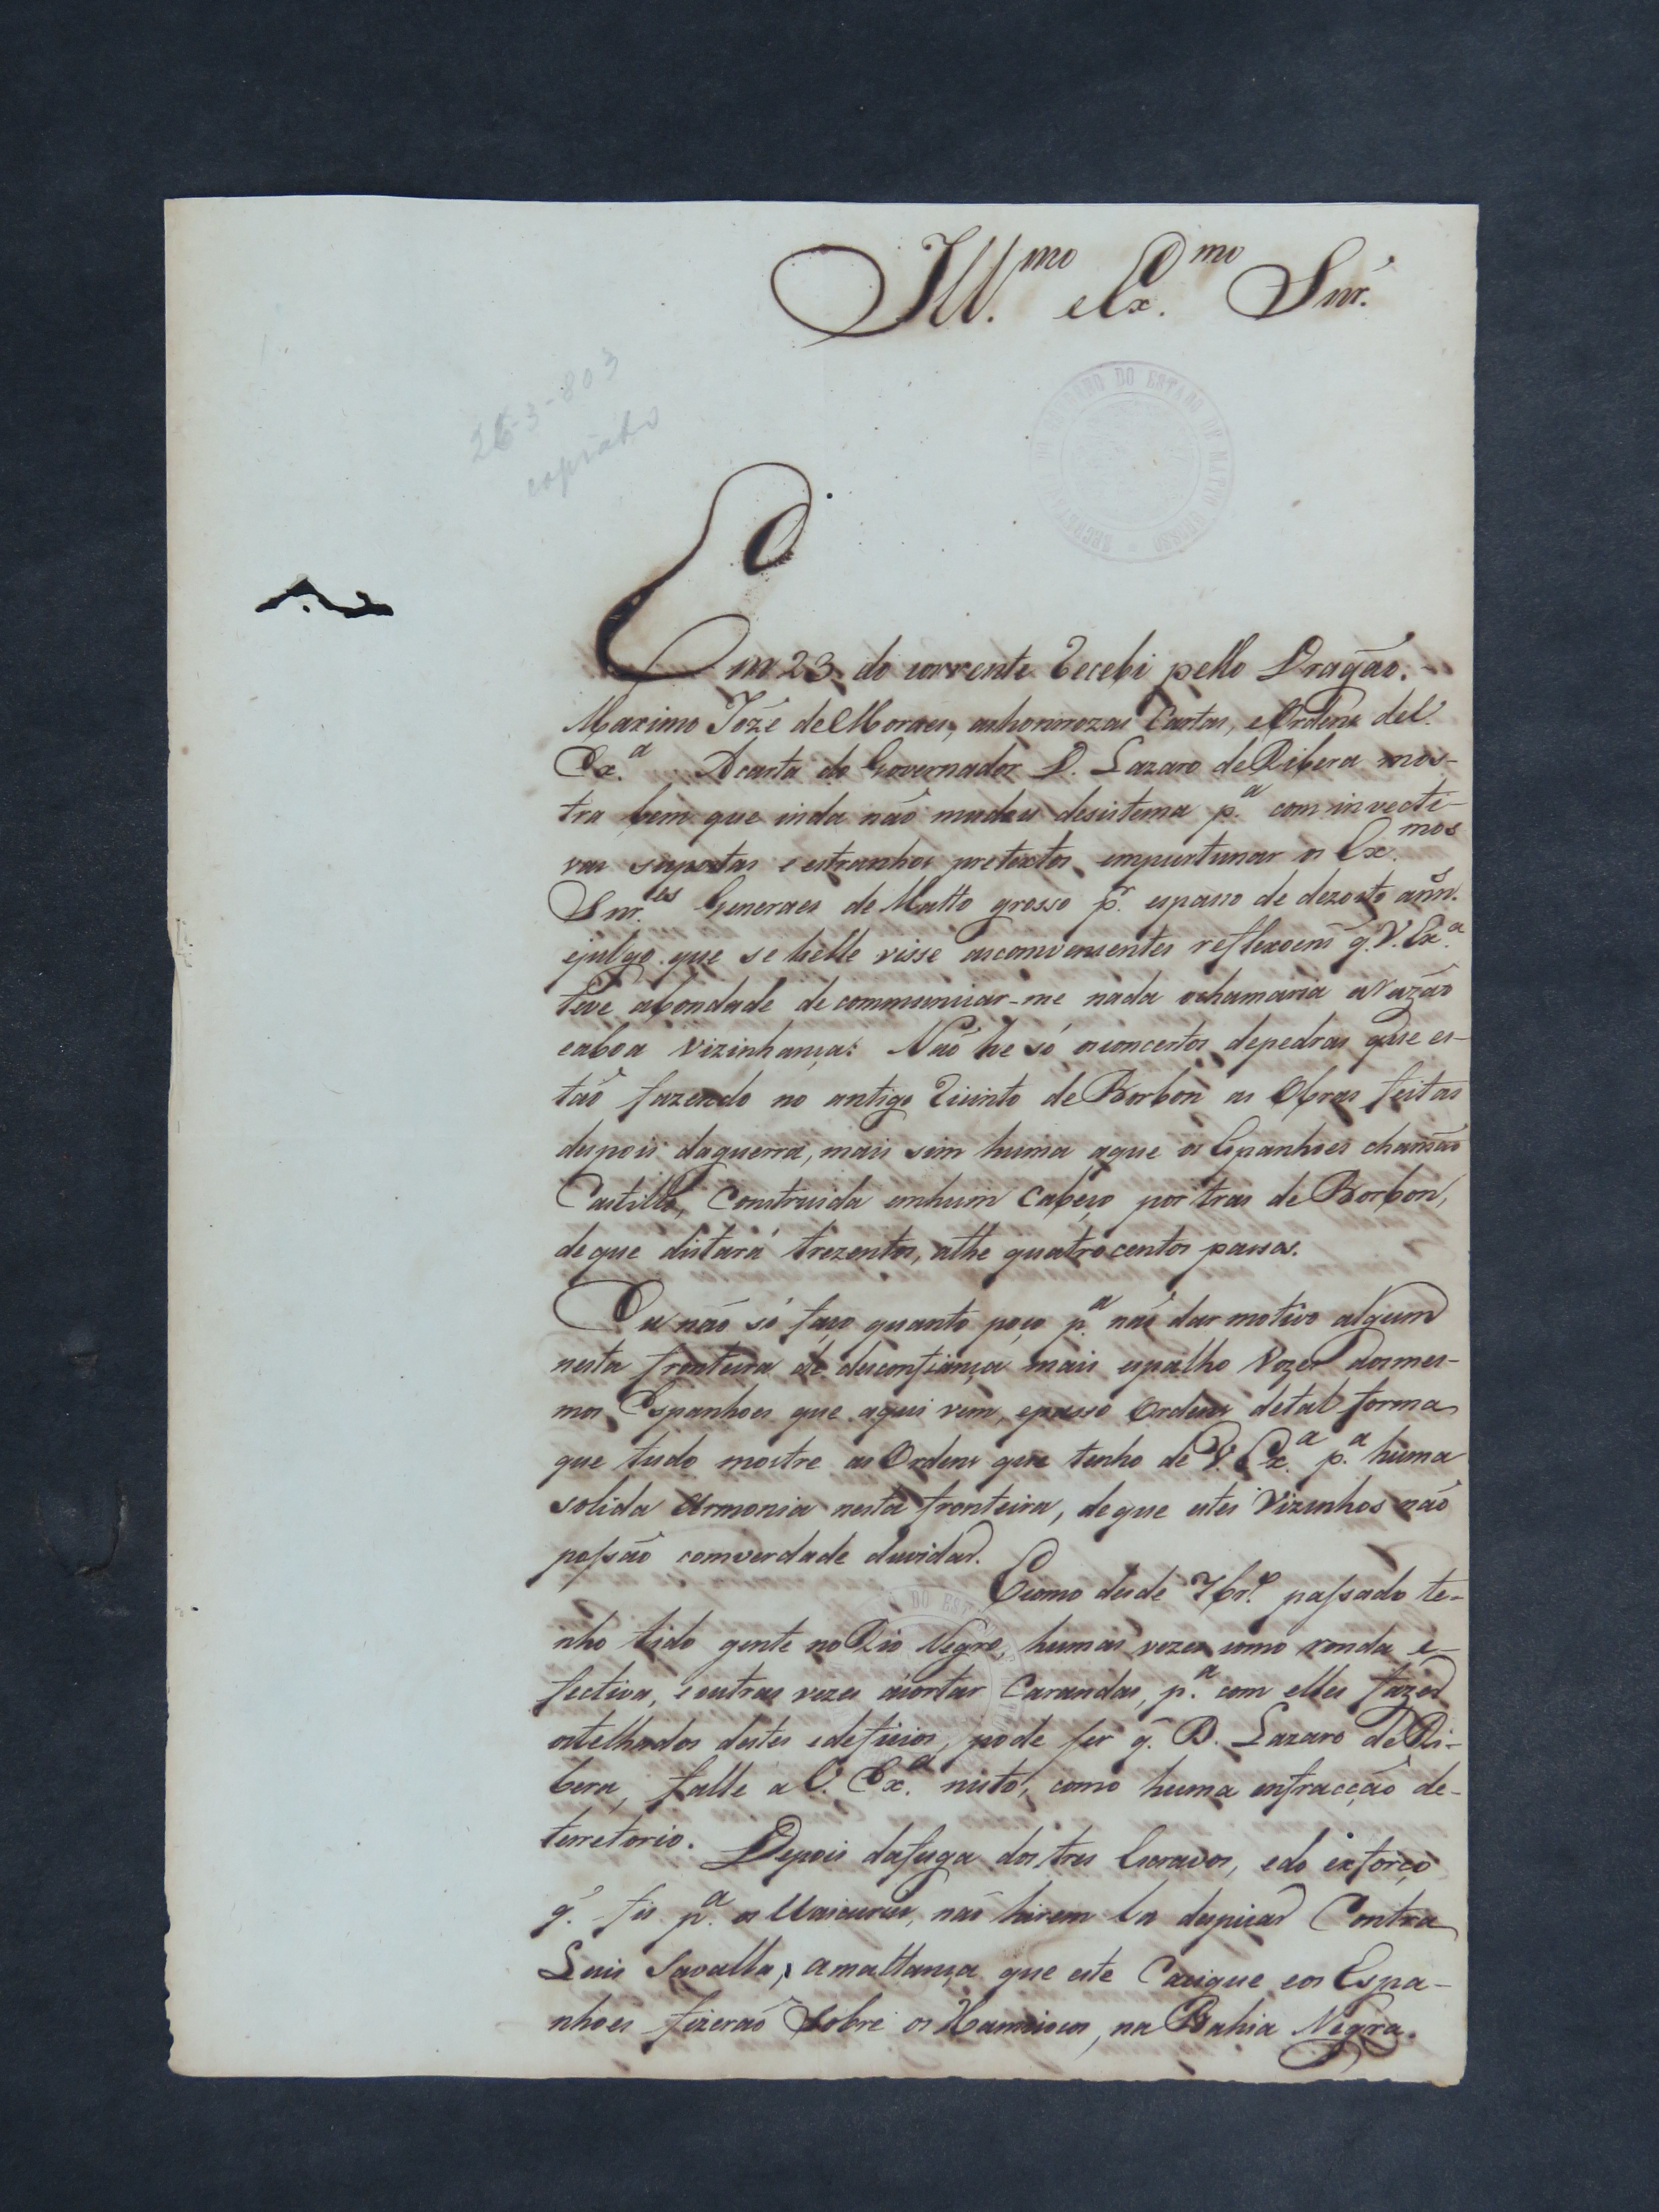 Ill.mo e Ex.mo Snr.
26-3-803
copiado
Em 23 do corrente recebi pello Dragão
Maximo Jozé de Moraes, ashonrrozas Cartas, e Ordens de V.
Ex.a A carta do Governador D. Lazaro de Ribera mos-
tra bem que inda não mudou desistema p.a com invecti-
vas supostas e estranhos pretextos importunar os Ex.mos
Snr.es Generaes de Matto grosso p.r espasso de dezoito ann.s
ejulgo que se helle visse asconvenientes reflexoens q. V. Ex.a
teve abondade de communicar-me nada ochamaria arazão
eaboa vizinhança: Não he só osconcertos depedras que es-
tão fazendo no antigo recinto de Borbon as Obras feitas
depois daguerra, mais sim huma aque os Espanhoes chamão
Castillo, Construida emhum Cabeço por tras de Borbon,
de que distará trezentos, athe quatro centos passos.
Eu não só faço quanto poço p.a não dar motivo algum
nesta fronteira de desconfiança mais espalho Vozes aosmes-
mos Espanhoes que aqui vem, epasso Ordens detal forma
que tudo mostre as Ordens que tenho de V. Ex.a p.a huma
solida Armonia nesta fronteira, deque estes Vizinhos não
possão comverdade duvidar.
Ecomo desde 7br.o passado te-
nho tido gente no Rio Negro, humas vezes como ronda e-
fectiva, e outras vezes acortar Carandas, p.a com elles fazer
ostelhados destes edeficios, pode ser q. D. Lazaro de Ri-
bera, falle a V. Ex.a nisto, como huma infracção de-
terretorio. Depois dafuga dos tres Escravos, edo exforço
q. fis p.a os Uaicurus, não hirem la despicar Contra
Luis Savalla, amattança que este Casique eos Espa-
nhoes fizerão Sobre os Xamicocos, na Bahia Negra.